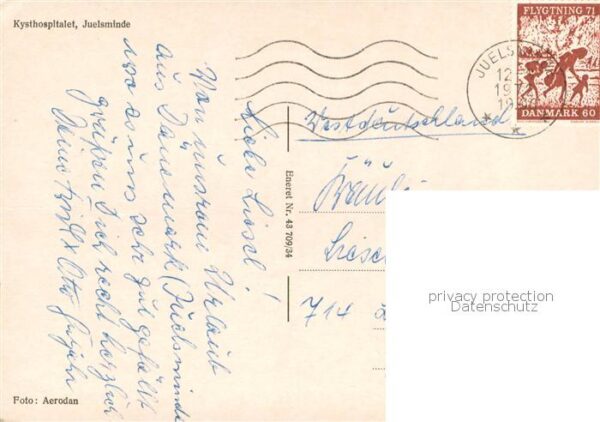 Kysthospitalet, Juelsminde
Liebe Liesel!
Von unserem Urlaub
aus Dänemark (Juelsminde
wo es uns sehr gut gefällt
grüßen Dich recht herzlich
Deine
Otto
Foto: Aerodan
Eneret Nr. 43 709/34
FLYGTNING 71
DANMARK 60
JUELS
12
19
Westdeutschland
Fräulein
Liesel
714
privacy protection
Datenschutz